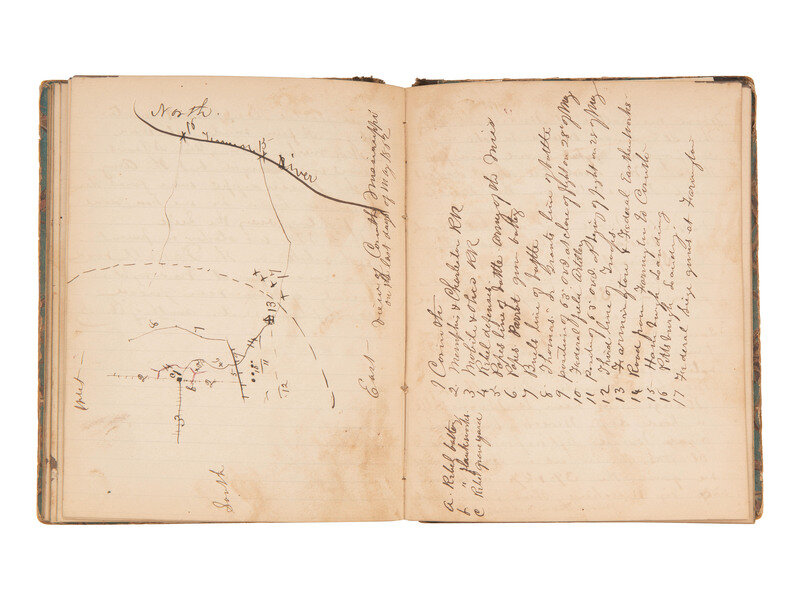 North.
River
West
South
East – view of Corinth Mississippi
on the last days of May
1 Corinth
2 Memphis & Charleston RR
3 Mobile & Ohio RR
4 Rebel defenses
5 Popes line of battle Army of the Miss
6 Popes gun battery
7 Buels line of battle
8 Thomas' or Grants line of battle
9 position of 63' at close of fight on 28' of May
10 Federal field Artillery
11 position of 63' at of fight on 28' of May
12 Third line of Troops
13 Farmington & Federal Earthworks
14 Road from Farmington to Corinth
15 Hamburgh Landing
16 Pittsburgh Landing
17 Federal siege guns at Farmington
a. Rebel battery
b "
c Rebel graveyard